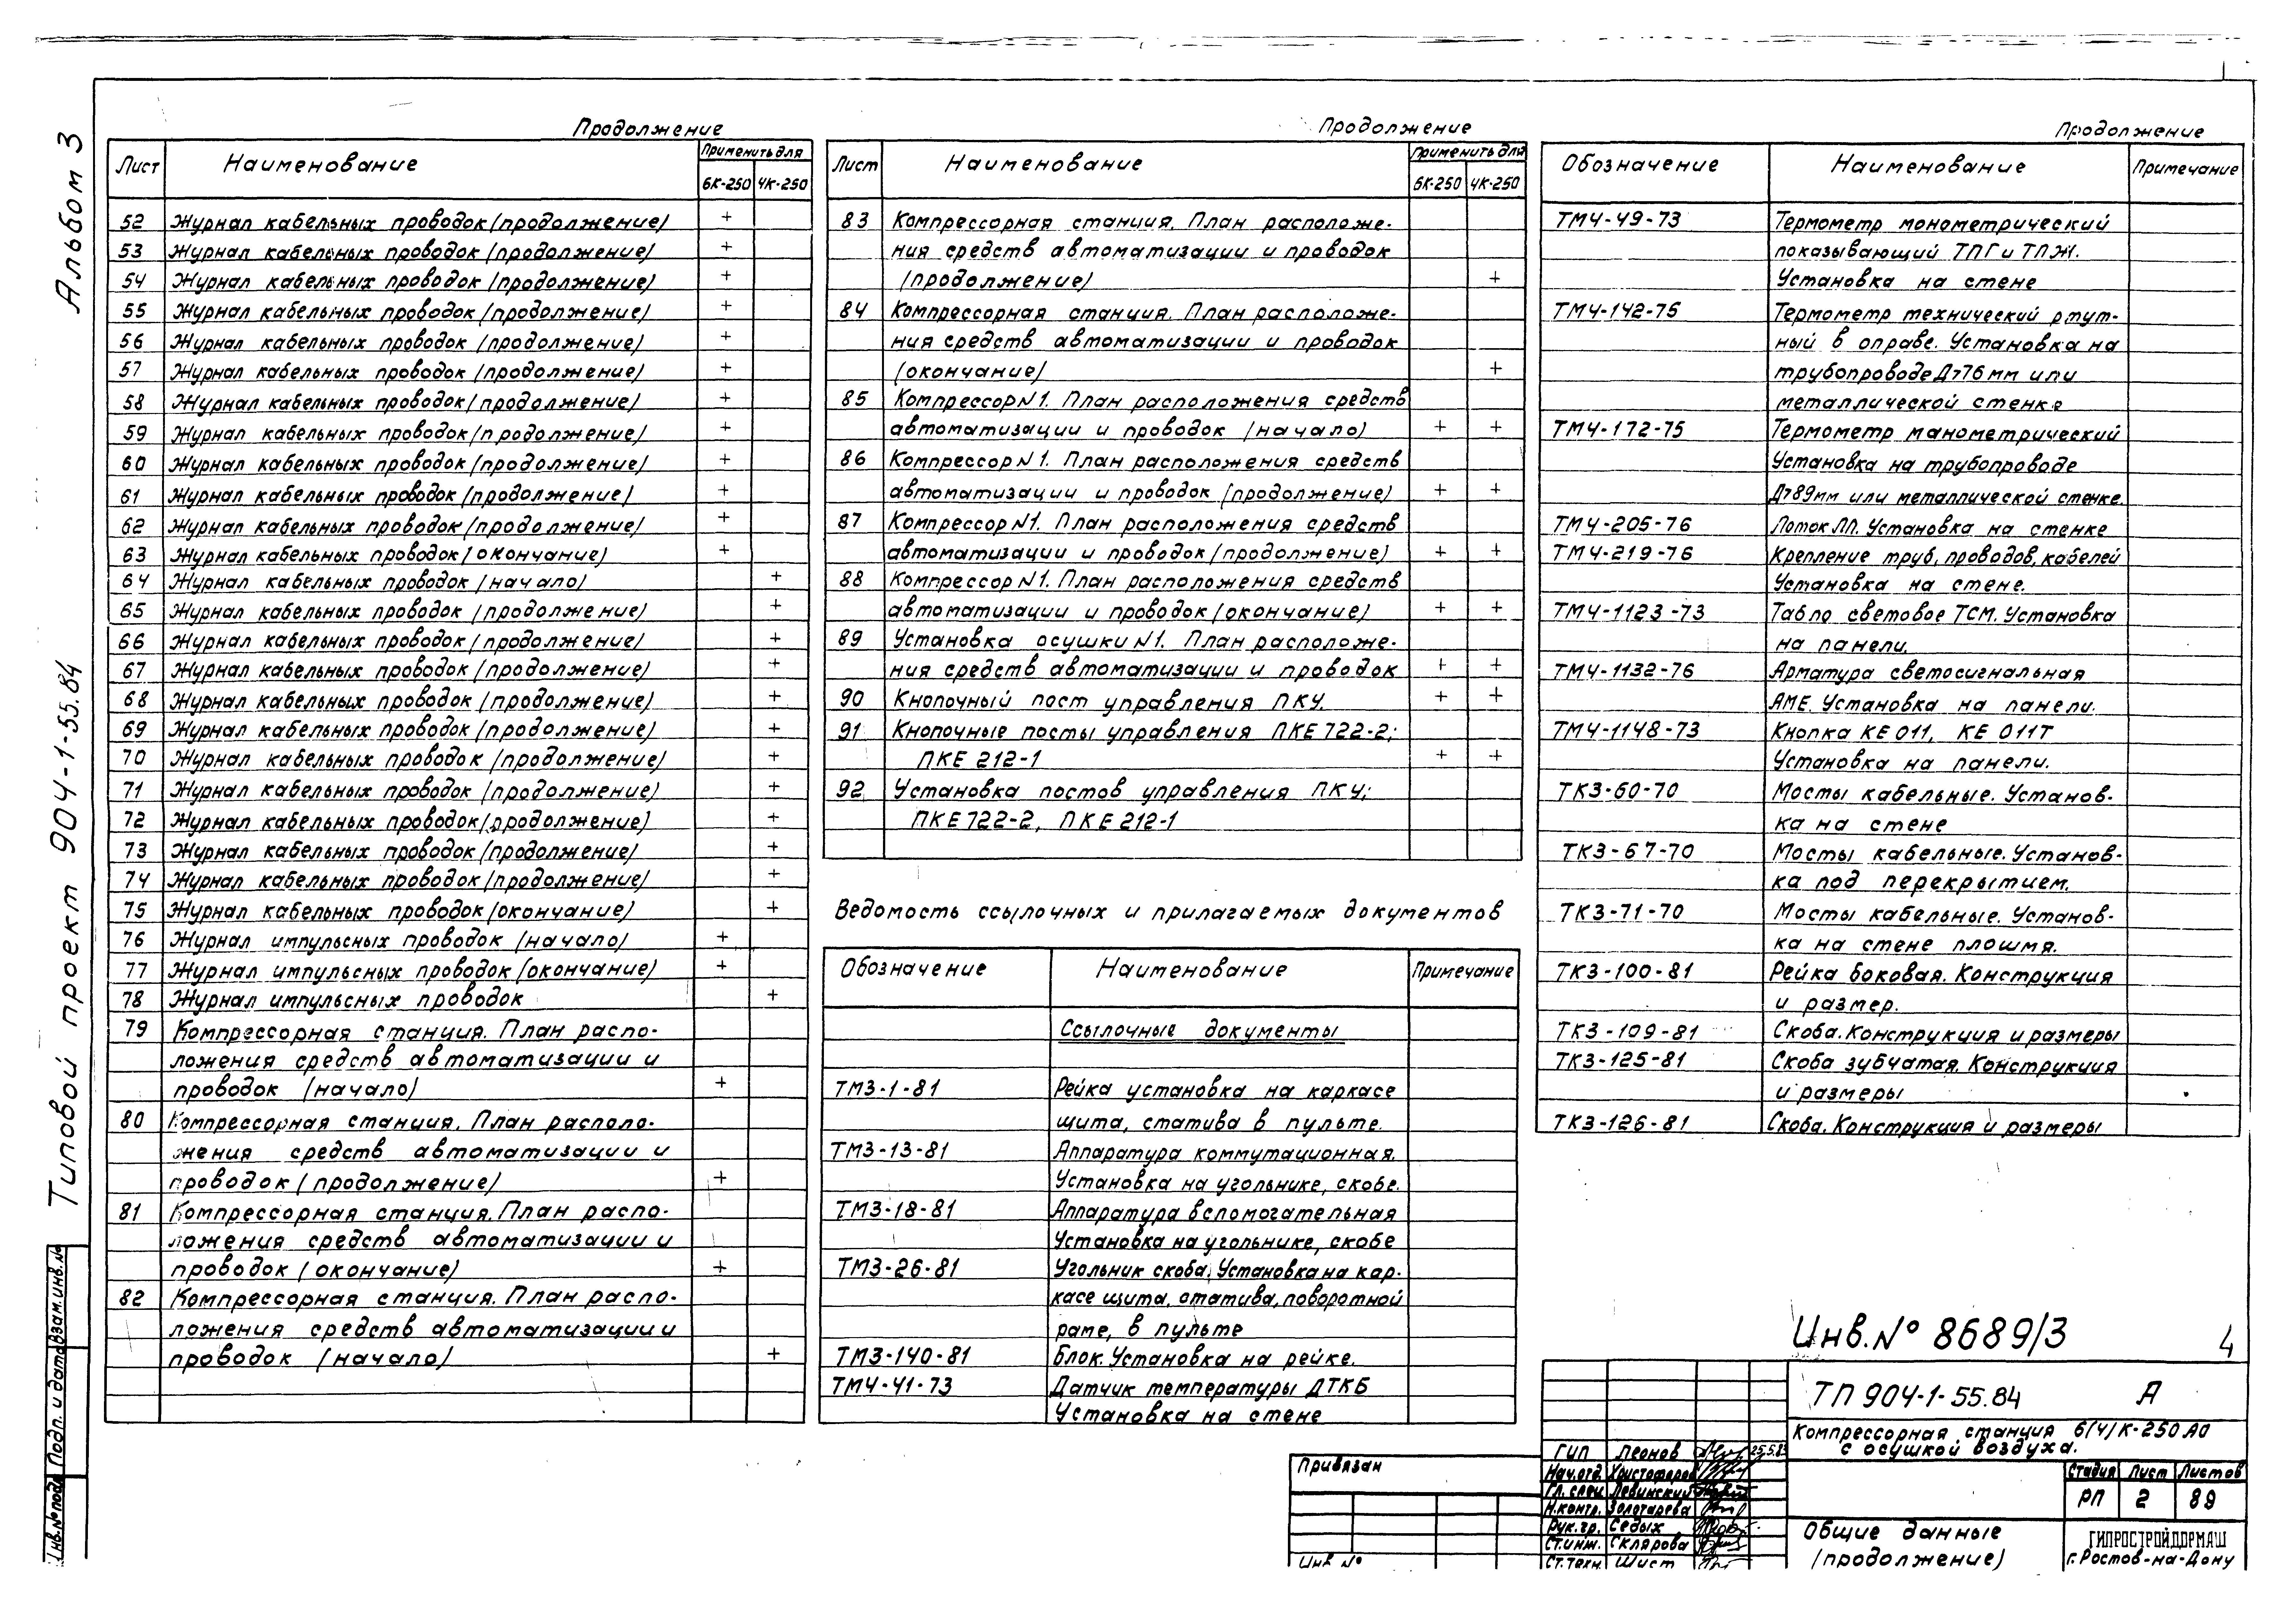 Альбом 3
Типовой проект 904-1-55.84
Взам.инв.№
Подп. и дата
Инв.№подл
Продолжение
Лист Наименование Применить для
6К-250 4К-250
52 Журнал кабельных проводок (продолжение) +
53 Журнал кабельных проводок (продолжение) +
54 Журнал кабельных проводок (продолжение) +
55 Журнал кабельных проводок (продолжение) +
56 Журнал кабельных проводок (продолжение) +
57 Журнал кабельных проводок (продолжение) +
58 Журнал кабельных проводок (продолжение) +
59 Журнал кабельных проводок (продолжение) +
60 Журнал кабельных проводок (продолжение) +
61 Журнал кабельных проводок (продолжение) +
62 Журнал кабельных проводок (продолжение) +
63 Журнал кабельных проводок (окончание) +
64 Журнал кабельных проводок (начало) +
65 Журнал кабельных проводок (продолжение) +
66 Журнал кабельных проводок (продолжение) +
67 Журнал кабельных проводок (продолжение) +
68 Журнал кабельных проводок (продолжение) +
69 Журнал кабельных проводок (продолжение) +
70 Журнал кабельных проводок (продолжение) +
71 Журнал кабельных проводок (продолжение) +
72 Журнал кабельных проводок (продолжение) +
73 Журнал кабельных проводок (продолжение) +
74 Журнал кабельных проводок (продолжение) +
75 Журнал кабельных проводок (окончание) +
76 Журнал импульсных проводок (начало) +
77 Журнал импульсных проводок (окончание) +
78 Журнал импульсных проводок +
79 Компрессорная станция. План распо-
ложения средств автоматизации и
проводок (начало) +
80 Компрессорная станция. План располо-
жения средств автоматизации и
проводок (продолжение) +
81 Компрессорная станция. План распо-
ложения средств автоматизации и
проводок (окончание) +
82 Компрессорная станция. План распо-
ложения средств автоматизации и
проводок (начало) +
Продолжение
Лист Наименование Применить для
6К-250 4К-250
83 Компрессорная станция. План расположе-
ния средств автоматизации и проводок
(продолжение) +
84 Компрессорная станция. План расположе-
ния средств автоматизации и проводок
(окончание) +
85 Компрессор №1. План расположения средств
автоматизации и проводок (начало) + +
86 Компрессор №1. План расположения средств
автоматизации и проводок (продолжение) + +
87 Компрессор №1. План расположения средств
автоматизации и проводок (продолжение) + +
88 Компрессор №1. План расположения средств
автоматизации и проводок (окончание) + +
89 Установка осушки №1. План расположе-
ния средств автоматизации и проводок + +
90 Кнопочный пост управления ПКУ. + +
91 Кнопочные посты управления ПКЕ 722-2;
ПКЕ 212-1 + +
92 Установка постов управления ПКУ;
ПКЕ 722-2, ПКЕ 212-1
Ведомость ссылочных и прилагаемых документов
Обозначение Наименование Примечание
Ссылочные документы
ТМ3-1-81 Рейка установка на каркасе
щита, статива в пульте.
ТМ3-13-81 Аппаратура коммутационная.
Установка на угольнике, скобе.
ТМ3-18-81 Аппаратура вспомогательная
Установка на угольнике, скобе
ТМ3-26-81 Угольник скоба. Установка на кар-
касе щита, статива, поворотной
раме, в пульте
ТМ3-140-81 Блок. Установка на рейке.
ТМ4-41-73 Датчик температуры ДТКБ
Установка на стене
Продолжение
Обозначение Наименование Примечание
ТМ4-49-73 Термометр монометрический
показывающий ТПГ и ТПЖ.
Установка на стене
ТМ4-142-75 Термометр технический ртут-
ный в оправе. Установка на
трубопроводе Д>76мм или
металлической стенке
ТМ4-172-75 Термометр манометрический
Установка на трубопроводе
Д>89мм или металлической стенке.
ТМ4-205-76 Лоток ЛП. Установка на стенке
ТМ4-219-76 Крепление труб, проводов, кабелей
Установка на стене.
ТМ4-1123-73 Табло световое ТСМ. Установка
на панели.
ТМ4-1132-76 Арматура светосигнальная
АМЕ. Установка на панели.
ТМ4-1148-73 Кнопка КЕ 011, КЕ 011Т
Установка на панели.
ТК3-60-70 Мосты кабельные. Установ-
ка на стене
ТК3-67-70 Мосты кабельные. Установ-
ка под перекрытием.
ТК3-71-70 Мосты кабельные. Установ-
ка на стене плошмя.
ТК3-100-81 Рейка боковая. Конструкция
и размер.
ТК3-109-81 Скоба. Конструкция и размеры
ТК3-125-81 Скоба зубчатая. Конструкция
и размеры
ТК3-126-81 Скоба. Конструкция и размеры
Инв.№ 8689/3 4
ТП 904-1-55.84 А
Компрессорная станция 6(4)К-250 АО
с осушкой воздуха.
Привязан
Инв №
ГИП Леонов 25.5.83
Нач.отд. Христофоров
Гл. спец Левинский
Н.контр. Золотарева
Рук.гр. Седых
Ст.инж. Склярова
Ст.техн. Шист
Стадия Лист Листов
РП 2 89
Общие данные
(продолжение)
ГИПРОСТРОЙДОРМАШ
г.Ростов-на-Дону